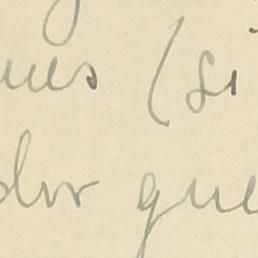 ues (si
dor que